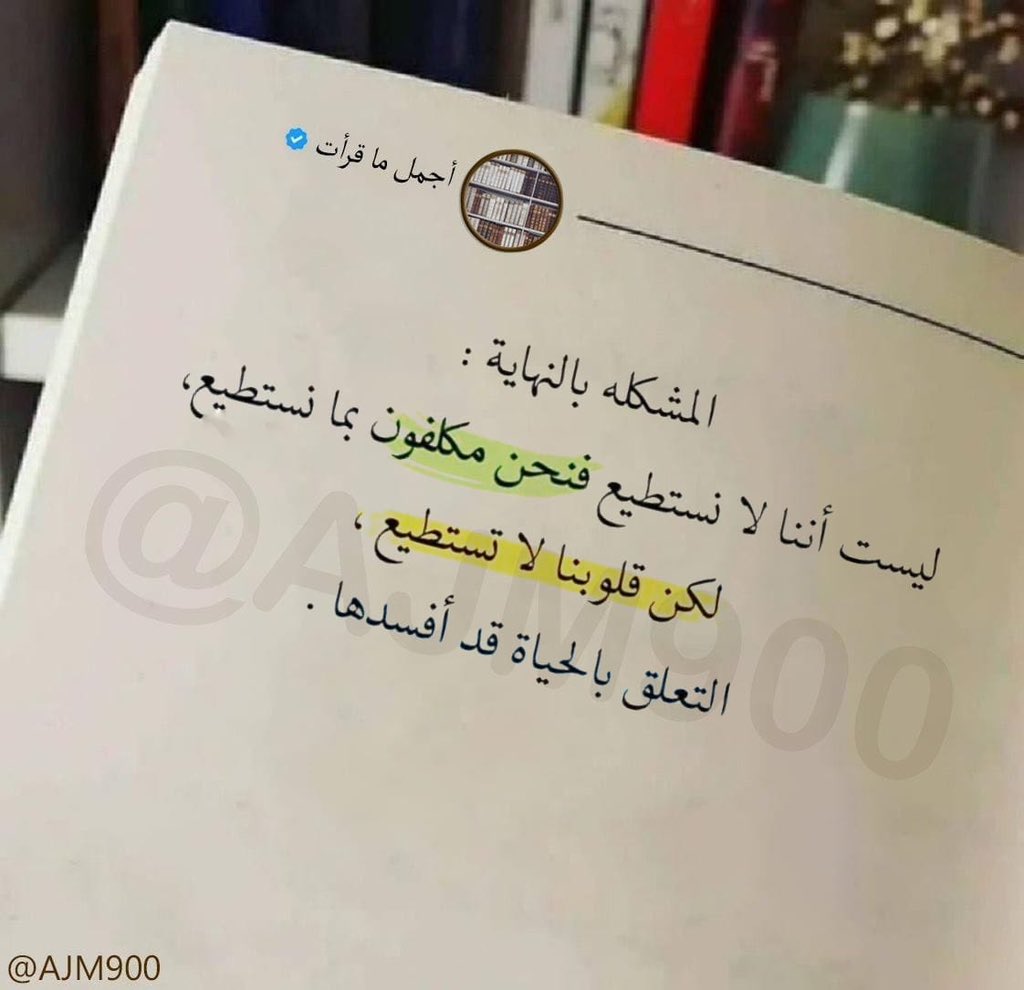 أجمل ما قرأت
المشكله بالنهاية :
ليست أننا لا نستطيع فنحن مكلفون بما نستطيع،
لكن قلوبنا لا تستطيع ،
التعلق بالحياة قد أفسدها .
@AJM900
@AJM900